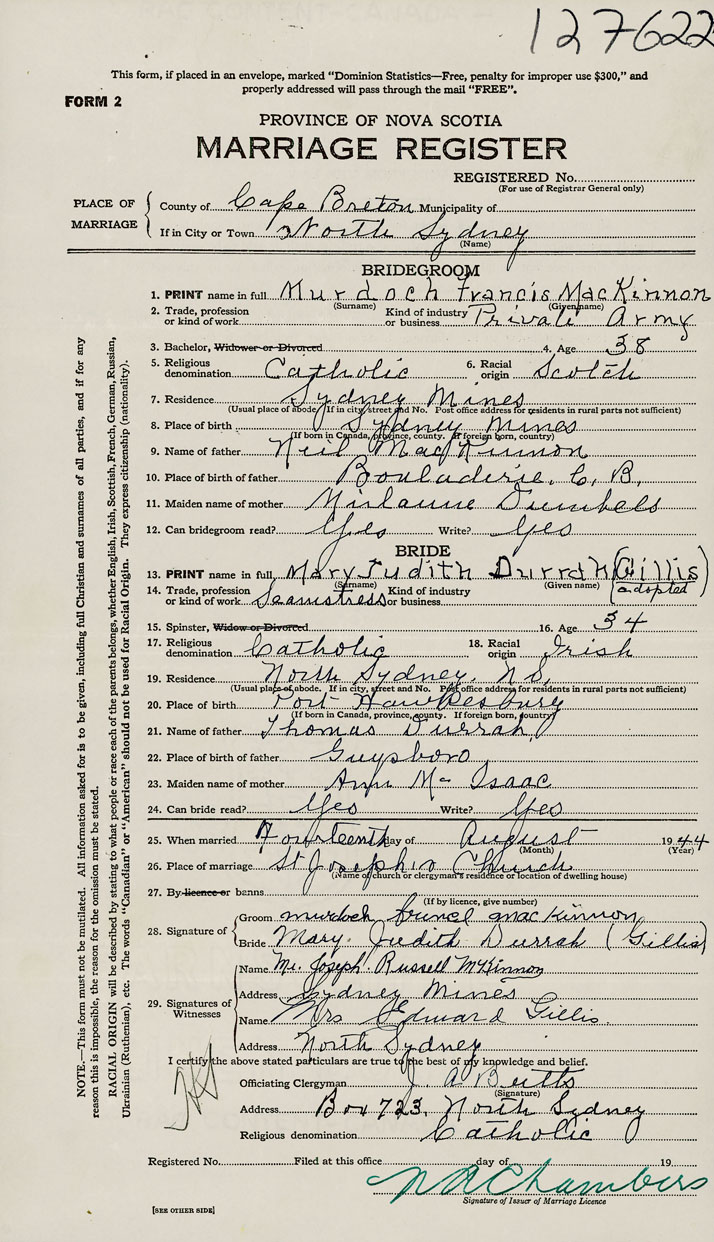 127622
This form, if placed in an envelope, marked "Dominion Statistics—Free, penalty for improper use $300," and
properly addressed will pass through the mail "FREE".
FORM 2
PROVINCE OF NOVA SCOTIA
MARRIAGE REGISTER
REGISTERED No.
(For use of Registrar General only)
PLACE OF MARRIAGE
County of Cape Breton Municipality of
If in City or Town North Sydney
(Name)
BRIDEGROOM
1. PRINT name in full Murdoch Francis MacKinnon
(Surname) (Given Name)
2. Trade, profession or kind of work Kind of industry or business Private Army
3. Bachelor, Widower or Divorced 4. Age 38
5. Religious denomination Catholic 6. Racial origin Scotch
7. Residence Sydney Mines
(Usual place of abode. If in city, street and No. Post office address for residents in rural parts not sufficient)
8. Place of birth Sydney Mines
(If born in Canada, province, county. If foreign born, country)
9. Name of father Neil MacKinnon
10. Place of birth of father Bouladerie, C. B.
11. Maiden name of mother
12. Can bridegroom read? Yes Write? Yes
BRIDE
13. PRINT name in full Mary Judith Durrah (Gillis)
(Surname) (Given name) (adopted)
14. Trade, profession or kind of work Seamstress Kind of industry or business
15. Spinster, Widow or Divorced 16. Age 34
17. Religious denomination Catholic 18. Racial origin Irish
19. Residence North Sydney, N.S.
(Usual place of abode. If in city, street and No. Post office address for residents in rural parts not sufficient)
20. Place of birth Port Hawkesbury
(If born in Canada, province, county. If foreign born, country)
21. Name of father Thomas Durrah
22. Place of birth of father Guysboro
23. Maiden name of mother Ann Mc Isaac
24. Can bride read? Yes Write? Yes
25. When married Fourteenth day of August 1944
(Month) (Year)
26. Place of marriage St Joseph's Church
(Name of church or clergyman's residence or location of dwelling house)
27. By licence or banns
(If by licence, give number)
28. Signature of
Groom murdoch francel mac Kinnon
Bride Mary Judith Durrah (Gillis)
29. Signatures of Witnesses
Name Mr. Joseph Russell McKinnon
Address Sydney Mines
Name Mrs Edward Gillis
Address North Sydney
I certify the above stated particulars are true to the best of my knowledge and belief.
Officiating Clergyman J. A. Butts
(Signature)
Address Box 723, North Sydney
Religious denomination Catholic
Registered No. Filed at this office day of 19
Chambers
Signature of Issuer of Marriage Licence
[SEE OTHER SIDE]
NOTE.—This form must not be mutilated. All information asked for is to be given, including full Christian and surnames of all parties, and if for any
reason this is impossible, the reason for the omission must be stated.
RACIAL ORIGIN will be described by stating to what people or race each of the parents belongs, whether English, Irish, Scottish, French, German, Russian,
Ukrainian (Ruthenian), etc. The words "Canadian" or "American" should not be used for Racial Origin. They express citizenship (nationality).